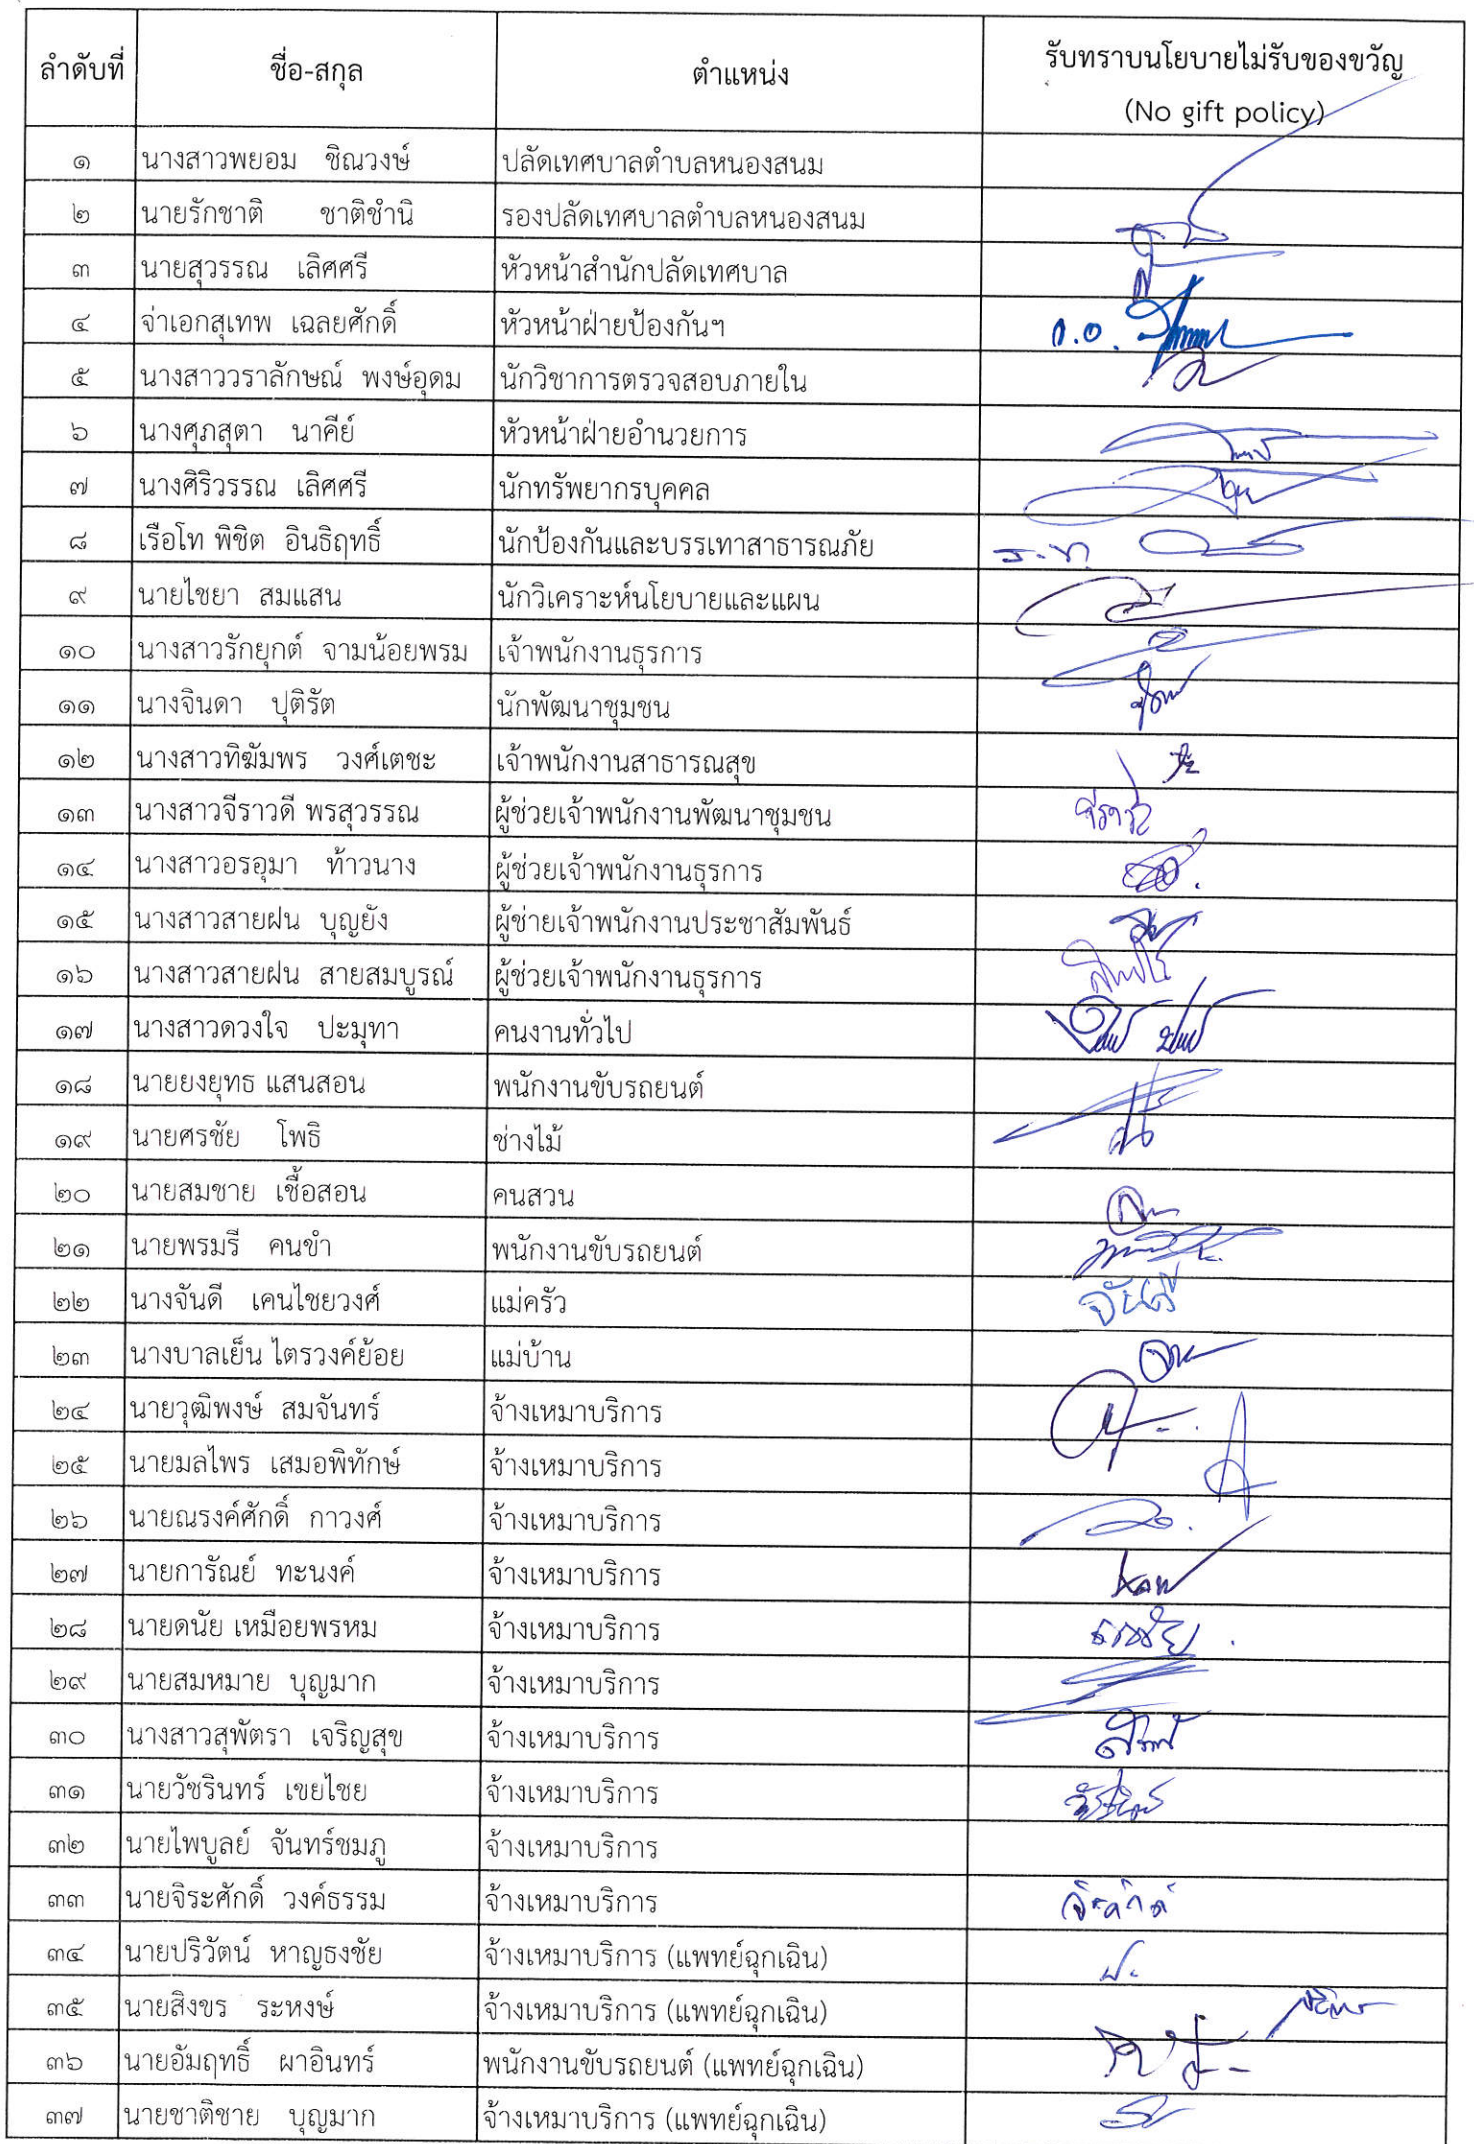 ลำดับที่ ชื่อ-สกุล ตำแหน่ง รับทราบนโยบายไม่รับของขวัญ
(No gift policy)
๑ นางสาวพยอม ชิณวงษ์ ปลัดเทศบาลตำบลหนองสนม
๒ นายรักชาติ ชาติชำนิ รองปลัดเทศบาลตำบลหนองสนม
๓ นายสุวรรณ เลิศศรี หัวหน้าสำนักปลัดเทศบาล
๔ จ่าเอกสุเทพ เฉลยศักดิ์ หัวหน้าฝ่ายป้องกันฯ
๕ นางสาววราลักษณ์ พงษ์อุดม นักวิชาการตรวจสอบภายใน
๖ นางศุภสุตา นาคีย์ หัวหน้าฝ่ายอำนวยการ
๗ นางศิริวรรณ เลิศศรี นักทรัพยากรบุคคล
๘ เรือโท พิชิต อินธิฤทธิ์ นักป้องกันและบรรเทาสาธารณภัย
๙ นายไชยา สมแสน นักวิเคราะห์นโยบายและแผน
๑๐ นางสาวรักยุกต์ จามน้อยพรม เจ้าพนักงานธุรการ
๑๑ นางจินดา ปุติรัต นักพัฒนาชุมชน
๑๒ นางสาวทิฆัมพร วงศ์เตชะ เจ้าพนักงานสาธารณสุข
๑๓ นางสาวจีราวดี พรสุวรรณ ผู้ช่วยเจ้าพนักงานพัฒนาชุมชน
๑๔ นางสาวอรอุมา ท้าวนาง ผู้ช่วยเจ้าพนักงานธุรการ
๑๕ นางสาวสายฝน บุญยัง ผู้ช่ายเจ้าพนักงานประชาสัมพันธ์
๑๖ นางสาวสายฝน สายสมบูรณ์ ผู้ช่วยเจ้าพนักงานธุรการ
๑๗ นางสาวดวงใจ ปะมุทา คนงานทั่วไป
๑๘ นายยงยุทธ แสนสอน พนักงานขับรถยนต์
๑๙ นายศรชัย โพธิ ช่างไม้
๒๐ นายสมชาย เชื้อสอน คนสวน
๒๑ นายพรมรี คนขำ พนักงานขับรถยนต์
๒๒ นางจันดี เคนไชยวงศ์ แม่ครัว จันดี
๒๓ นางบาลเย็น ไตรวงค์ย้อย แม่บ้าน
๒๔ นายวุฒิพงษ์ สมจันทร์ จ้างเหมาบริการ
๒๕ นายมลไพร เสมอพิทักษ์ จ้างเหมาบริการ
๒๖ นายณรงค์ศักดิ์ กาวงศ์ จ้างเหมาบริการ
๒๗ นายการัณย์ ทะนงค์ จ้างเหมาบริการ
๒๘ นายดนัย เหมือยพรหม จ้างเหมาบริการ
๒๙ นายสมหมาย บุญมาก จ้างเหมาบริการ
๓๐ นางสาวสุพัตรา เจริญสุข จ้างเหมาบริการ
๓๑ นายวัชรินทร์ เขยไชย จ้างเหมาบริการ
๓๒ นายไพบูลย์ จันทร์ชมภู จ้างเหมาบริการ
๓๓ นายจิระศักดิ์ วงค์ธรรม จ้างเหมาบริการ
๓๔ นายปริวัตน์ หาญธงชัย จ้างเหมาบริการ (แพทย์ฉุกเฉิน)
๓๕ นายสิงขร ระหงษ์ จ้างเหมาบริการ (แพทย์ฉุกเฉิน)
๓๖ นายอัมฤทธิ์ ผาอินทร์ พนักงานขับรถยนต์ (แพทย์ฉุกเฉิน)
๓๗ นายชาติชาย บุญมาก จ้างเหมาบริการ (แพทย์ฉุกเฉิน)